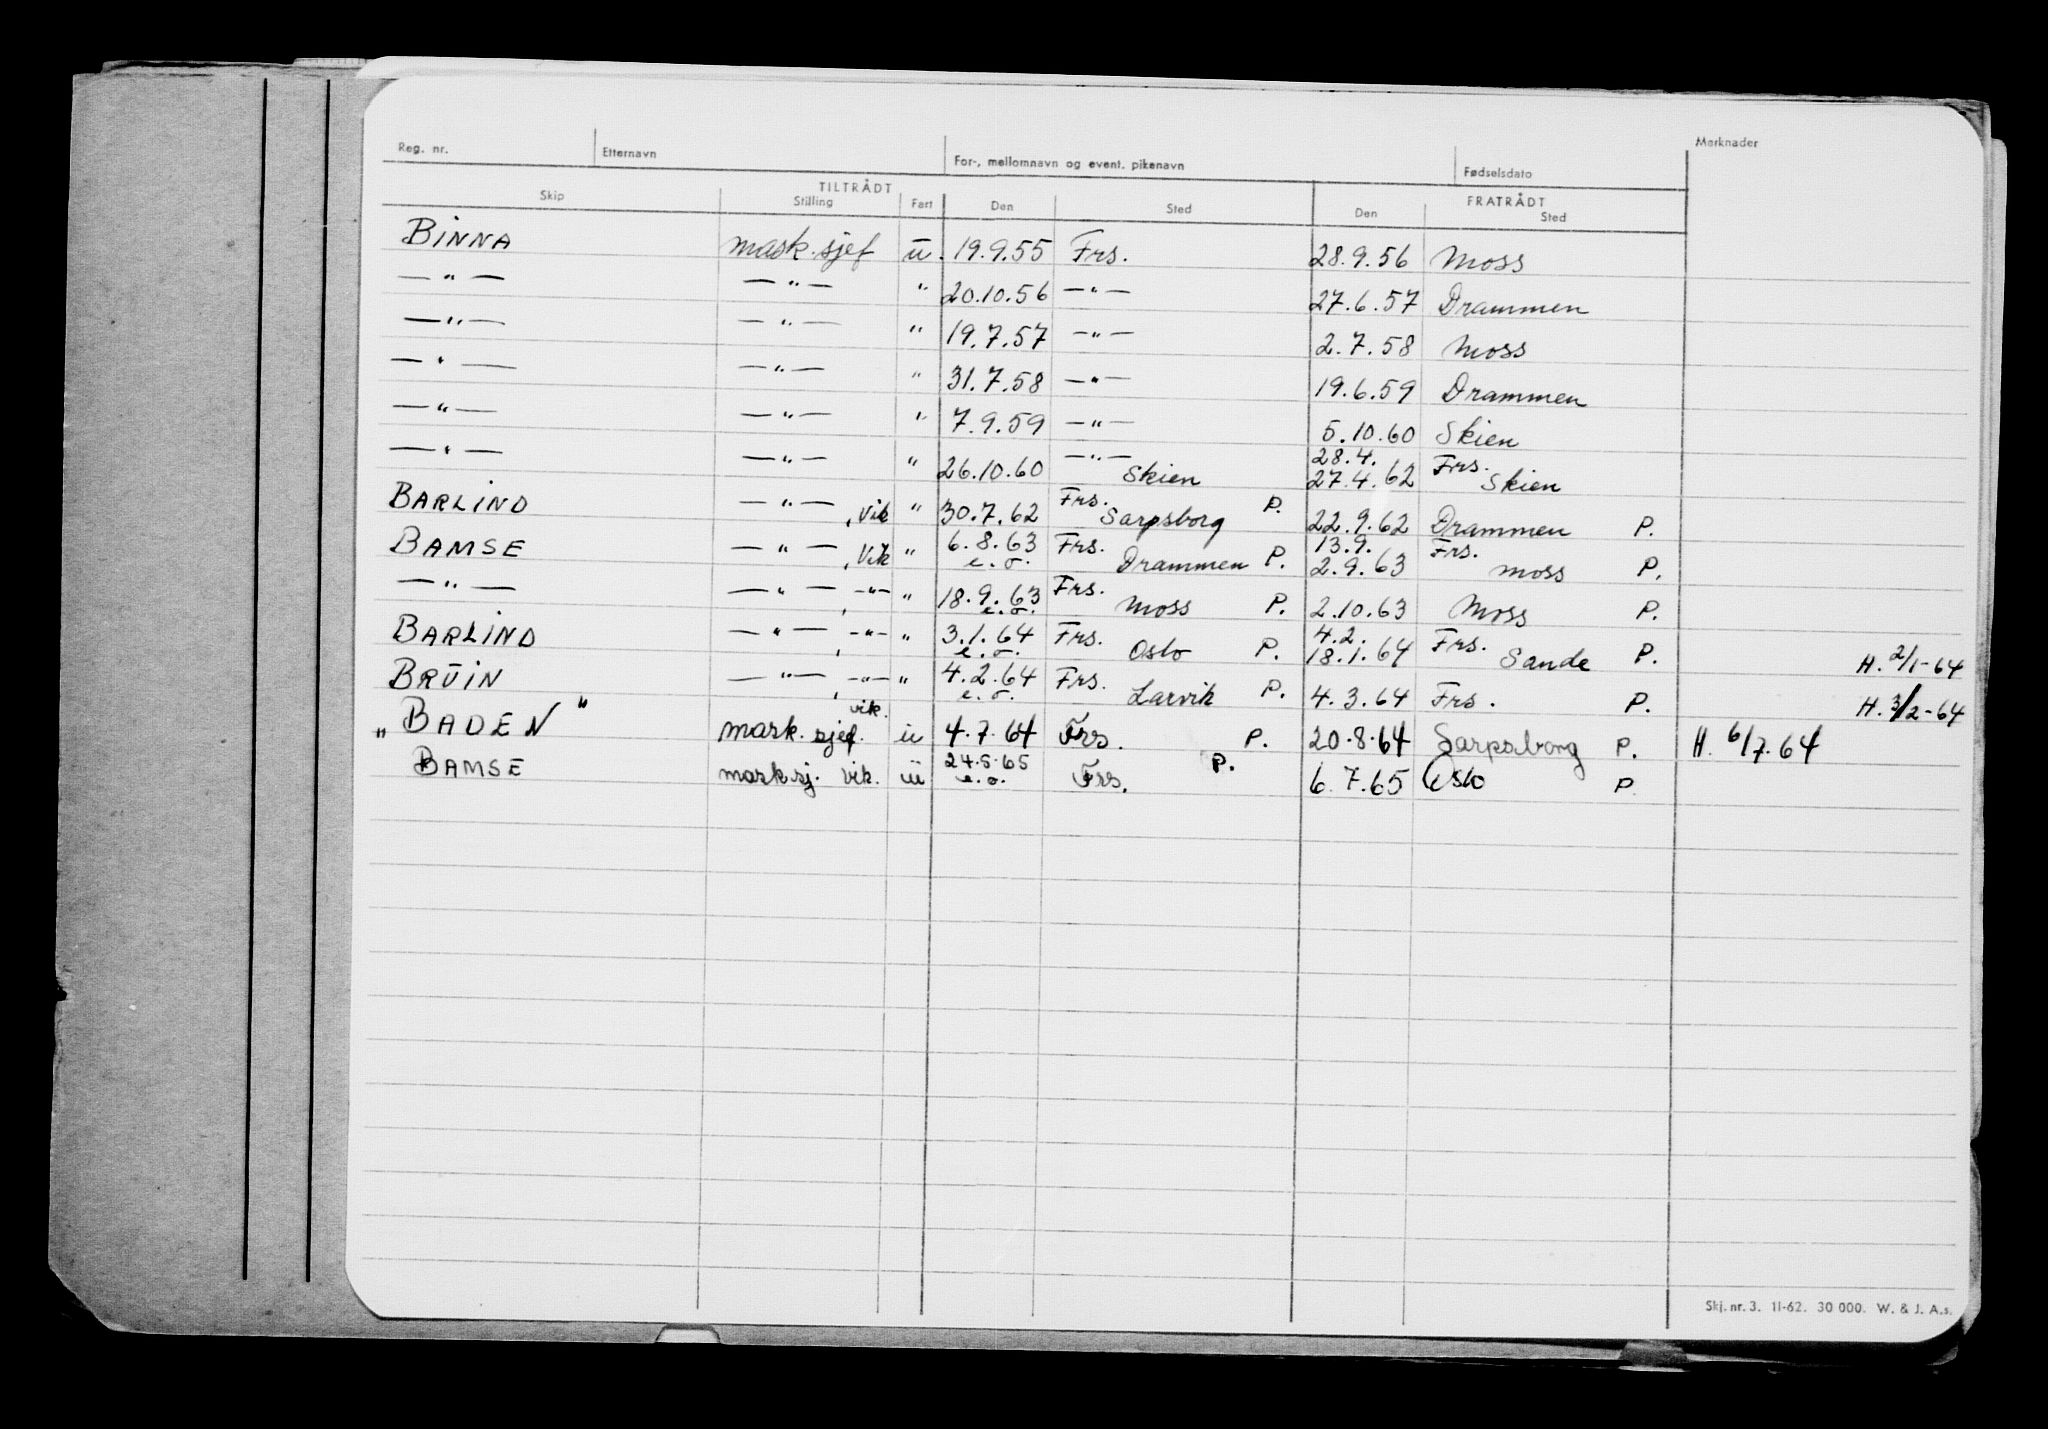 Reg. nr. Etternavn For-, mellomnavn og event. pikenavn Fødselsdato Merknader
TILTRÅDT FRATRÅDT
Skip Stilling Fart Den Sted Den Sted
BINNA mask. sjef u. 19.9.55 Frs. 28.9.56 Moss
— " — — " — " 20.10.56 — " — 27.6.57 Drammen
— " — — " — " 19.7.57 — " — 2.7.58 Moss
— " — — " — " 31.7.58 — " — 19.6.59 Drammen
— " — — " — " 7.9.59 — " — 5.10.60 Skien
— " — — " — " 26.10.60 — " — Skien 28.4. 27.4.62 Frs. Skien
BARLIND — " —, Vik " 30.7.62 Frs. Sarpsborg P. 22.9.62 Drammen P.
BAMSE — " —, Vik " 6.8.63 e.o. Frs. Drammen P. 13.9. 2.9.63 Frs. Moss P.
— " — — " —, -"- " 18.9.63 e.o. Frs. Moss P. 2.10.63 Moss P.
BARLIND — " —, -"- " 3.1.64 e.o. Frs. Oslo P. 4.2. 18.1.64 Frs. Sande P. H. 2/1-64
BRUIN — " —, -"- " 4.2.64 e.o. Frs. Larvik P. 4.3.64 Frs. P. H. 3/2-64
"BADEN" mask. sjef. vik. u 4.7.64 Frs. P. 20.8.64 Sarpsborg P. H. 6/7.64
BAMSE mask.sj. vik. u 24.5.65 e.o. Frs. P. 6.7.65 Oslo P
Skj. nr. 3. 11-62. 30 000. W. & J. A.s.